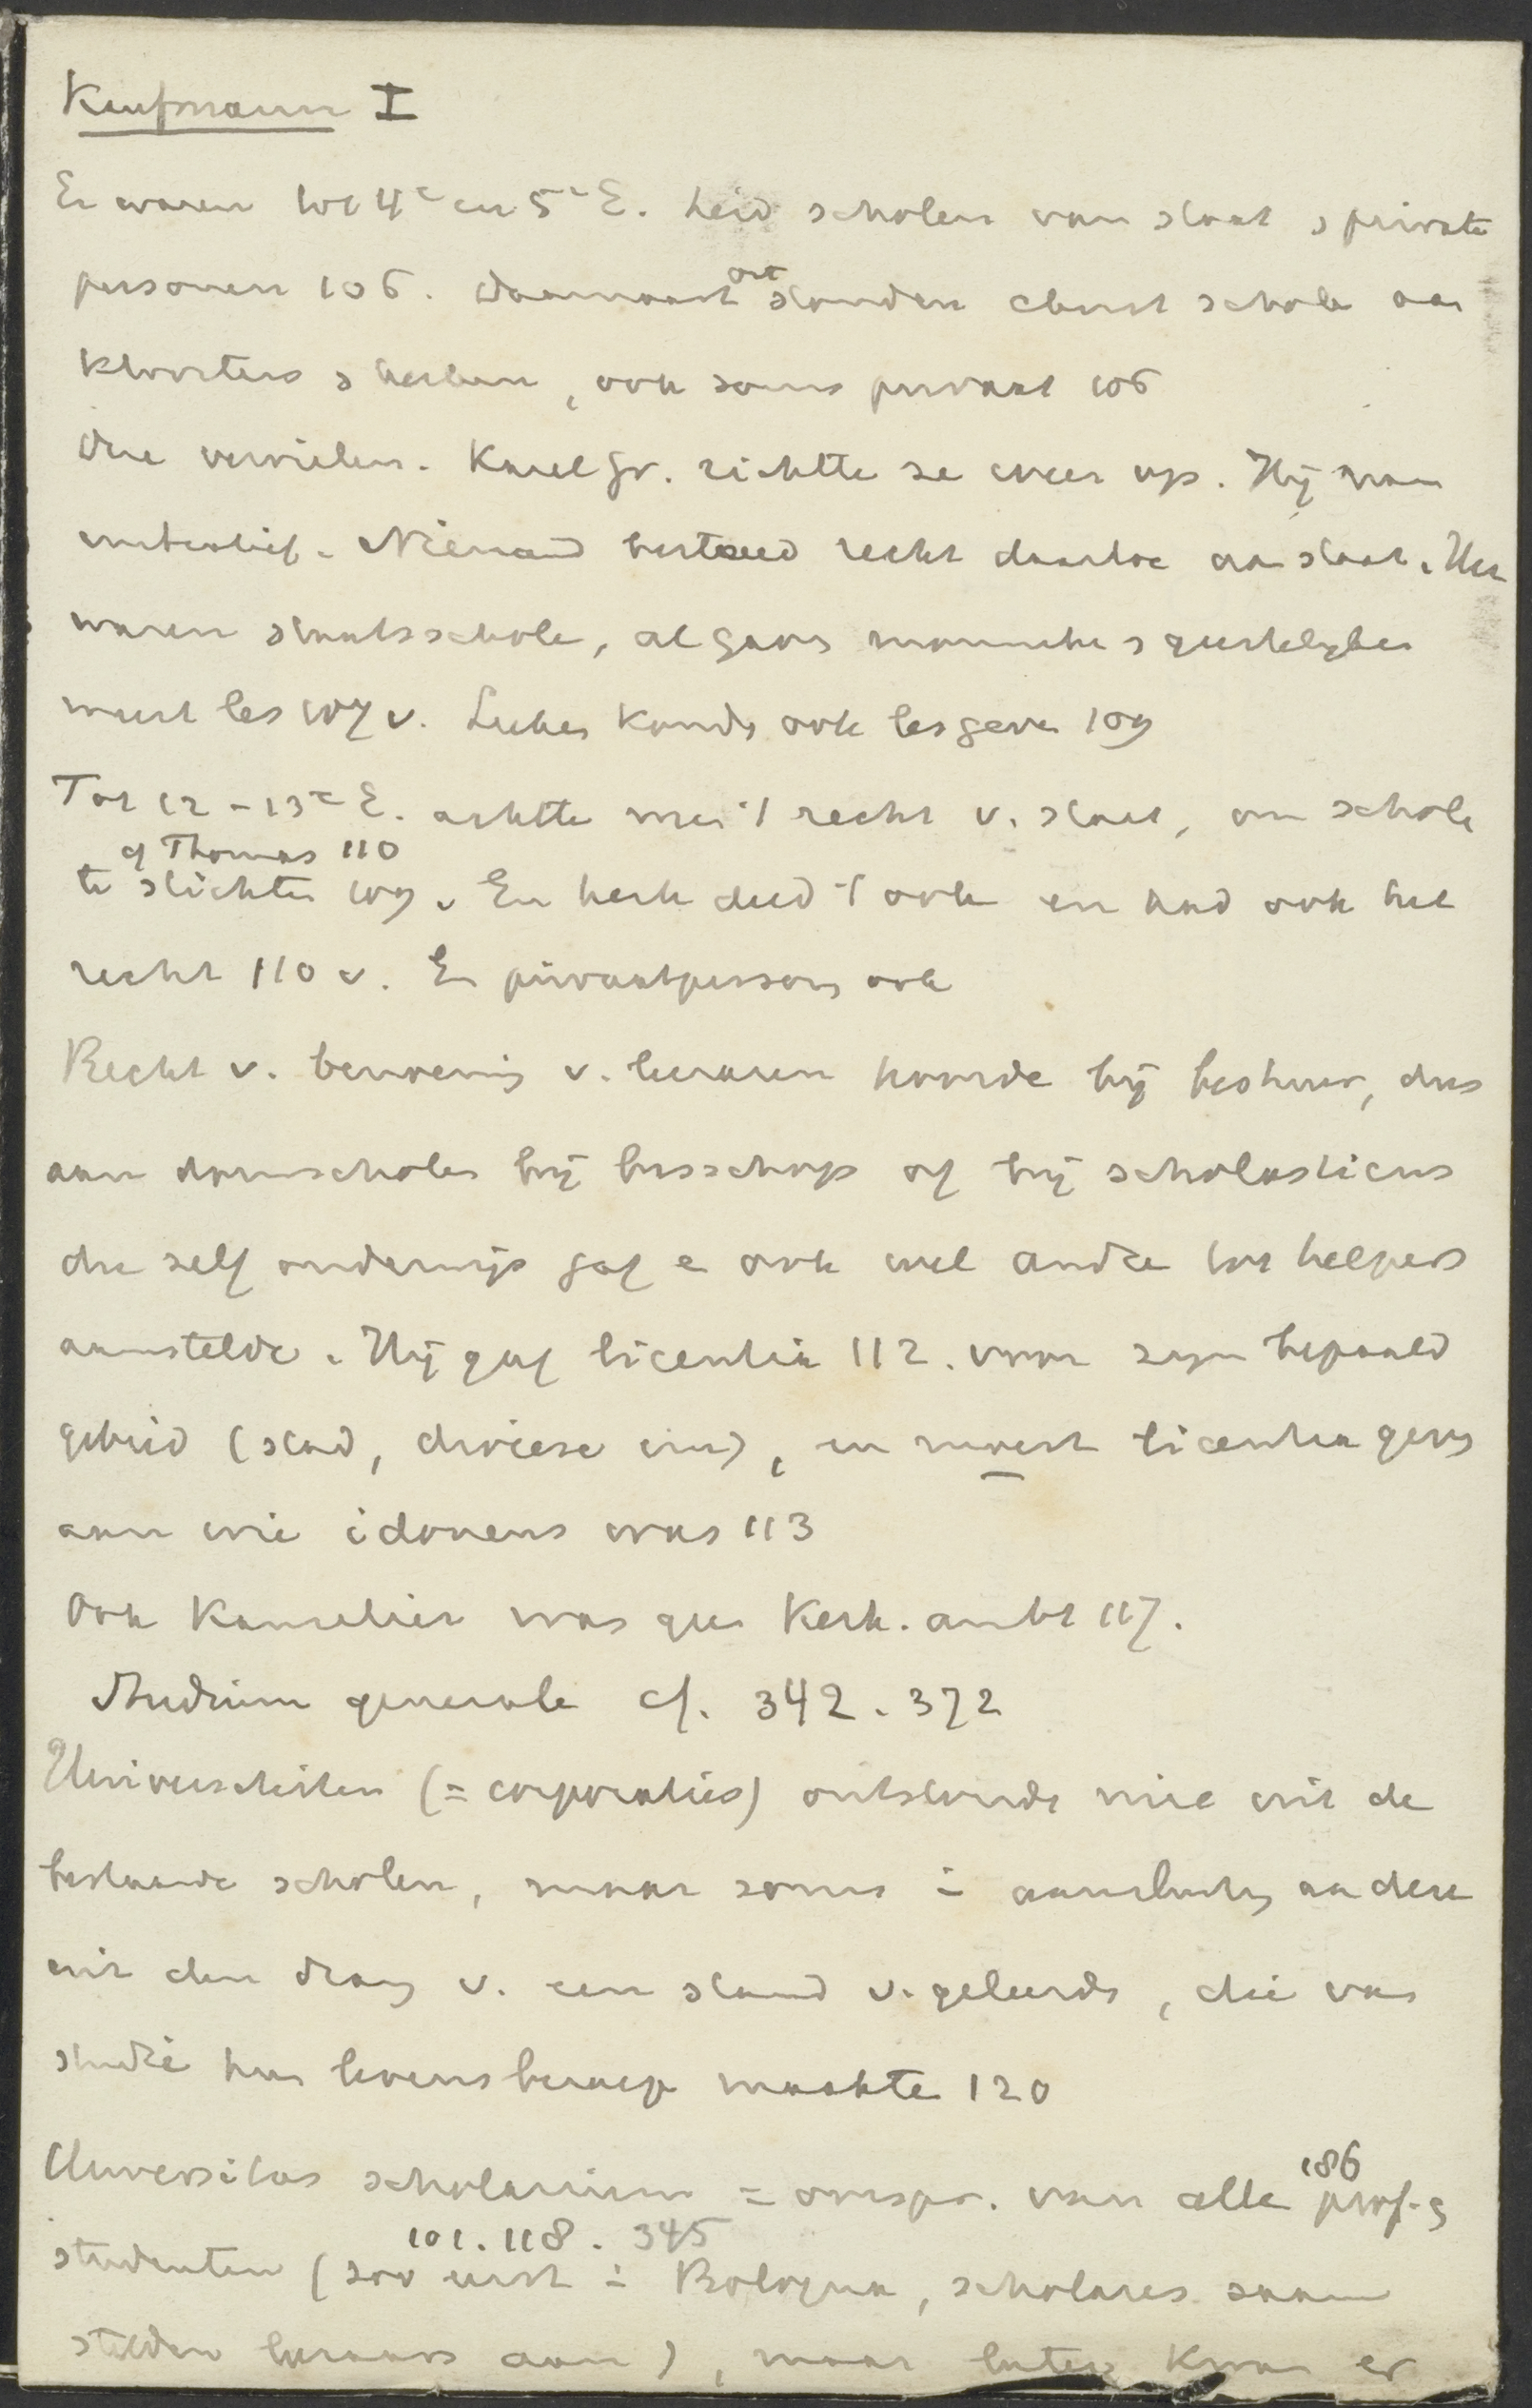 Kaufmann I
Er waren tot 4e en 5e E. heid scholen van staat & private
personen 106. Daarnaast ontstonden christ schole aan
kloosters & kerken, ook soms privaat 106
Die vervielen. Karel Gr. richtte ze weer op. Hij nam
initiatief. Niemand betwed recht daartoe aan staat. Het
waren staatsschole, al gaven monniken & geestelijken
meest les 107 v. Leeken konden ook les geven 109
Tot 12-13e E. achtte men 't recht v. staat, om schole
cf Thomas 110
te stichten 109. En kerk deed 't ook en had ook het
recht 110 v. En privaatpersonen ook
Recht v. benoeming v. leeraren hoorde bij bestuur, dus
aan domscholen bij bisschop of bij scholasticus
die zelf onderwijs gaf e ook wel andre tot helpers
aanstelde. Hij gaf licentia 112. voor zijn bepaald
gebied (stad, diocese enz), en moest licentia geven
aan wie idoneus was 113
Ook kanselier was geen kerk. ambt 117.
Studium generale cf. 342. 372
Universiteiten (= corporaties) ontstonden niet uit de
bestaande scholen, maar soms in aansluiting aan deze
uit den drang v. een stand v. geleerden, die van
studie hun levensberoep maakte 120
Universitas scholarium = oorspr. van alle prof. & 186
101. 118. 345
studenten (zoo eerst in Bologna, scholares zaam
stelden leeraars aan), maar later kwam er